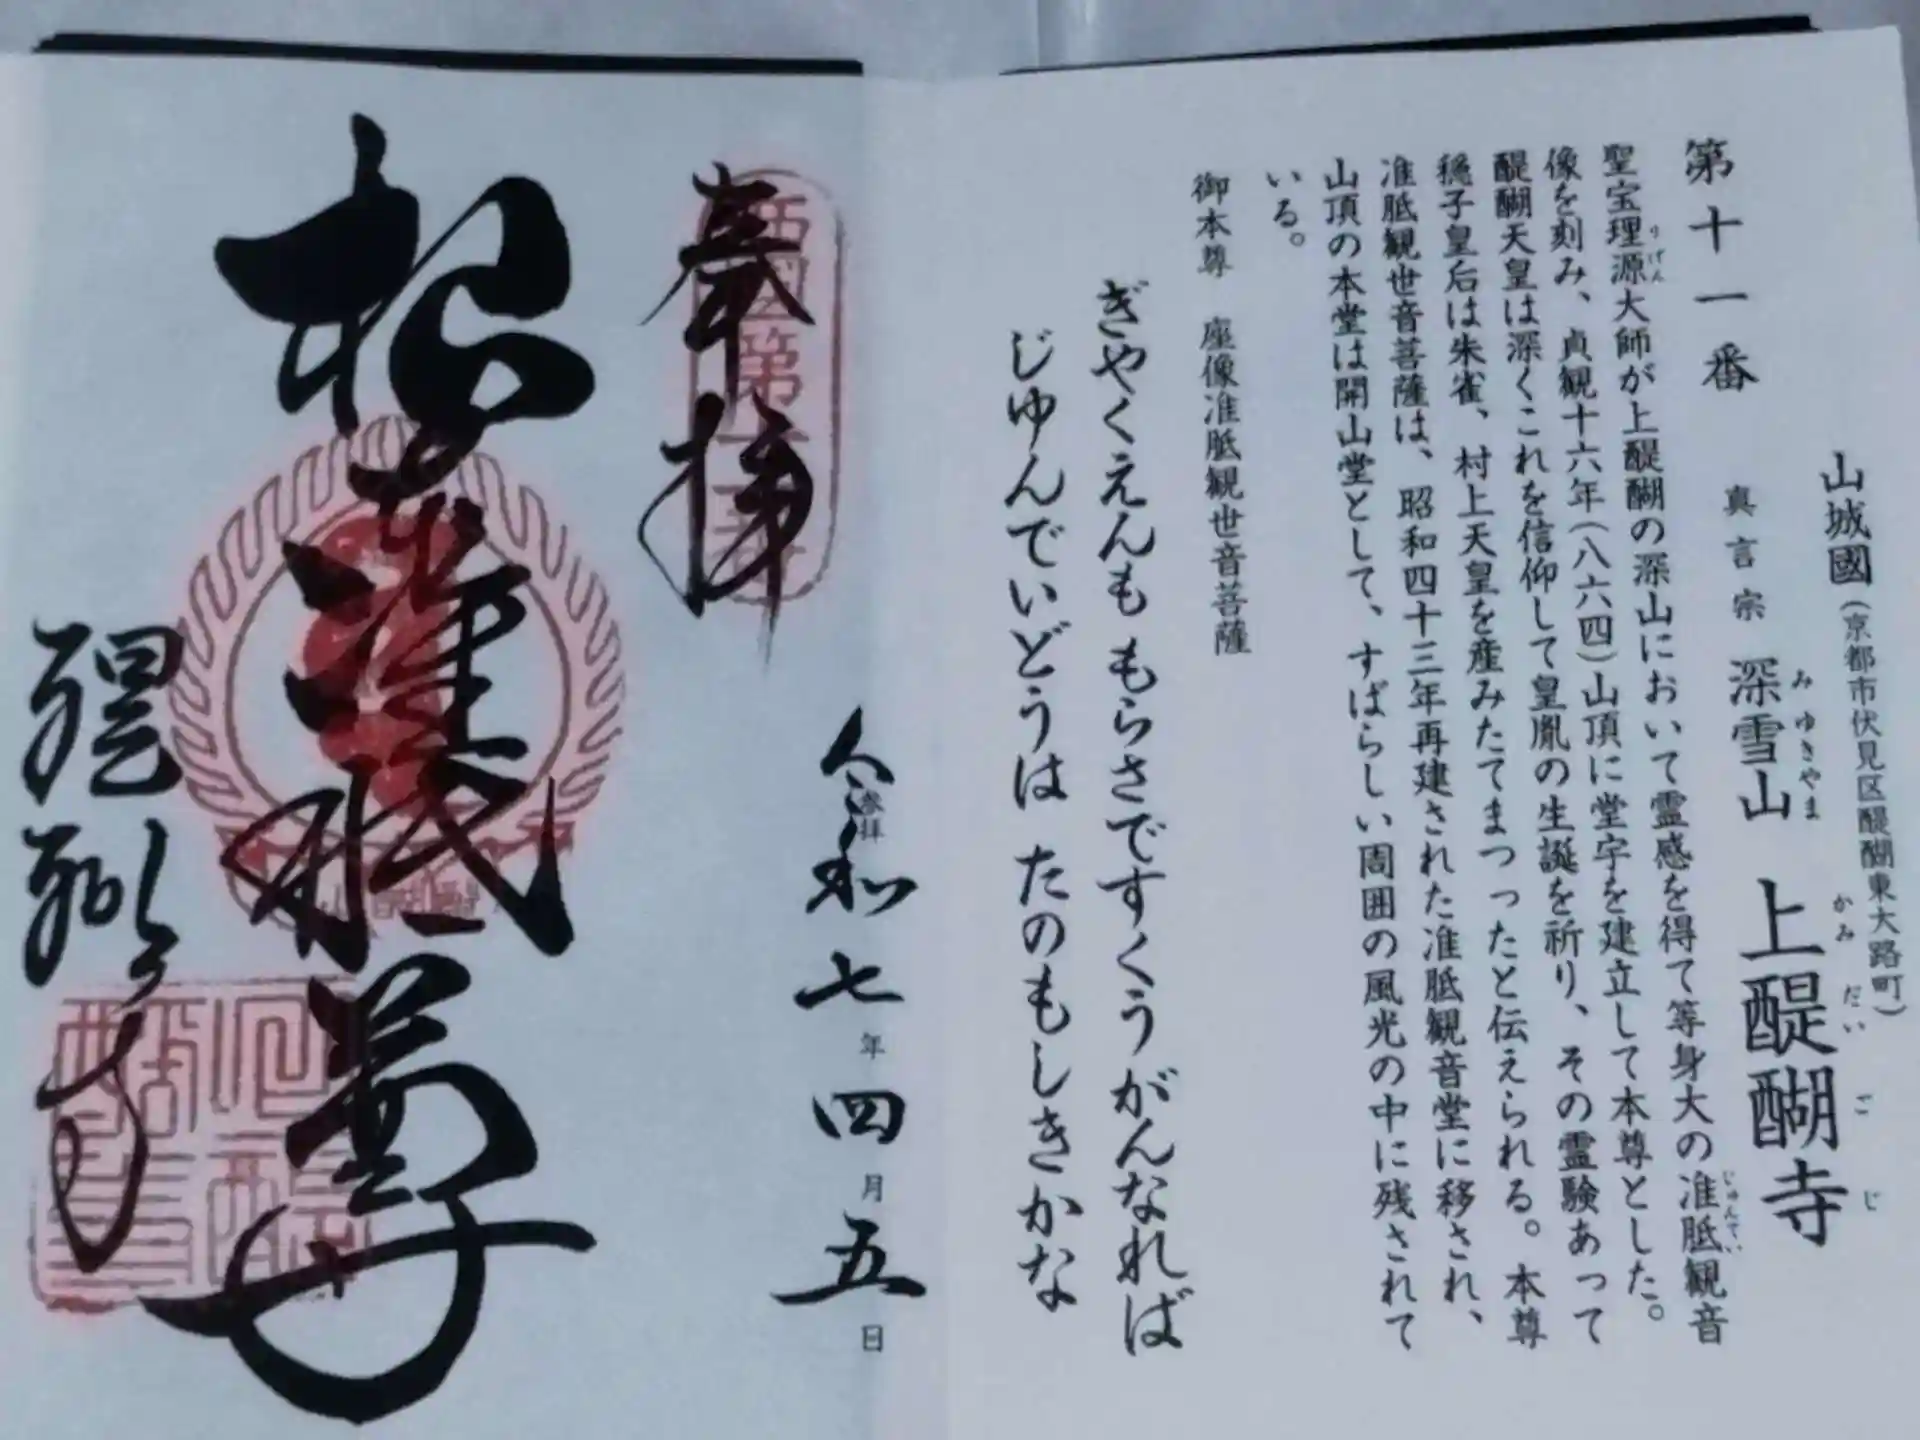 山城國(京都市伏見区醍醐東大路町)
第十一番 真言宗 深雪山 上醍醐寺
みゆきやま かみだいごじ
聖宝理源大師が上醍醐の深山において霊感を得て等身大の准胝観音
りげん じゅんてい
像を刻み、貞観十六年(八六四)山頂に堂宇を建立して本尊とした。
醍醐天皇は深くこれを信仰して皇胤の生誕を祈り、その霊験あって
穏子皇后は朱雀、村上天皇を産みたてまつったと伝えられる。本尊
准胝観世音菩薩は、昭和四十三年再建された准胝観音堂に移され、
山頂の本堂は開山堂として、すばらしい周囲の風光の中に残されて
いる。
御本尊 座像准胝観世音菩薩
ぎやくえんも もらさですくうがんなれば
じゆんでいどうは たのもしきかな
奉拝
西国第十一番
参拝
令和七年四月五日
准胝尊
醍醐寺